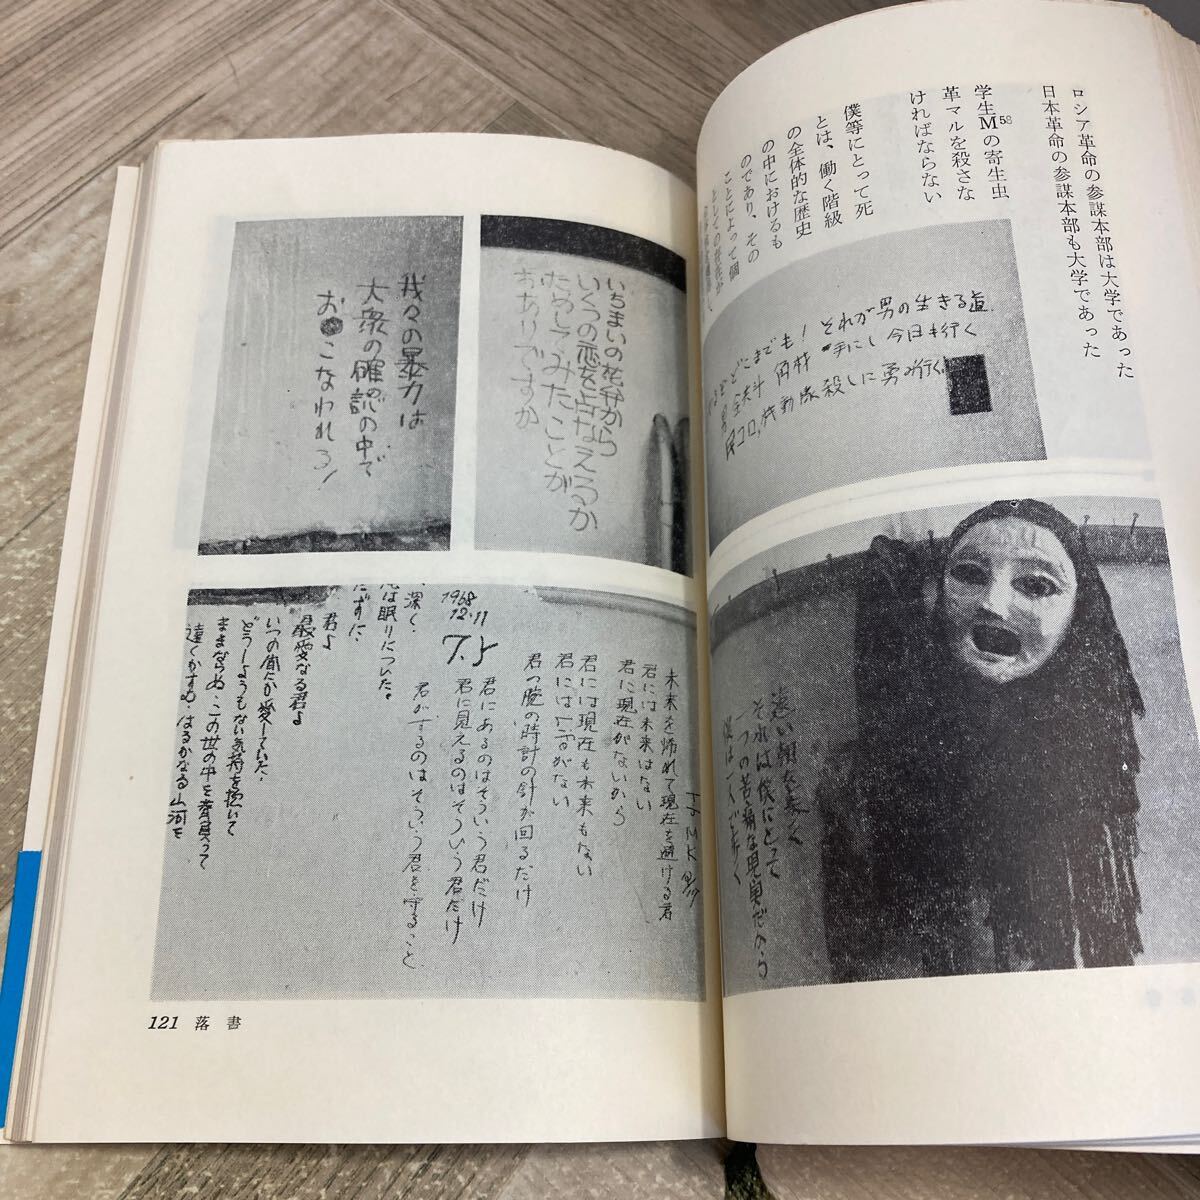 ロシア革命の参謀本部は大学であった
日本革命の参謀本部も大学であった
学生M58の寄生虫
革マルを殺さな
ければならない
僕等にとって死
とは、働く階級
の全体的な歴史
の中におけるも
のであり、その
ことによって個
どこまでも! それが男の生きる道
男 全共斗 角材 手にし 今日も行く
民コロ、機動隊殺しに勇み行く
遠い朝を来て
それは僕にとって
一つの苦痛な現実だから
いちまいの花弁から
いくつの恋を占なえるか
ためしてみたことが
おありですか
我々の暴力は
大衆の確認の中で
お こなわれろ!
未来を怖れて現在を避ける君
君には未来はない
君に現在がないから
君には現在も未来もない
君には何もない
君の腕の時計の針が回るだけ
君にあるのはそういう君だけ
君に見えるのはそういう君だけ
君がするのはそういう君を守ること
1968
12.11
深く.
は眠りについた。
だずに.
君よ
最愛なる君よ
いつの自にか愛していた.
どうしようもない気持を抱いて
ままならぬ.この世の中を背負って
遠くかすむ.はるかなる山河を
121 落書